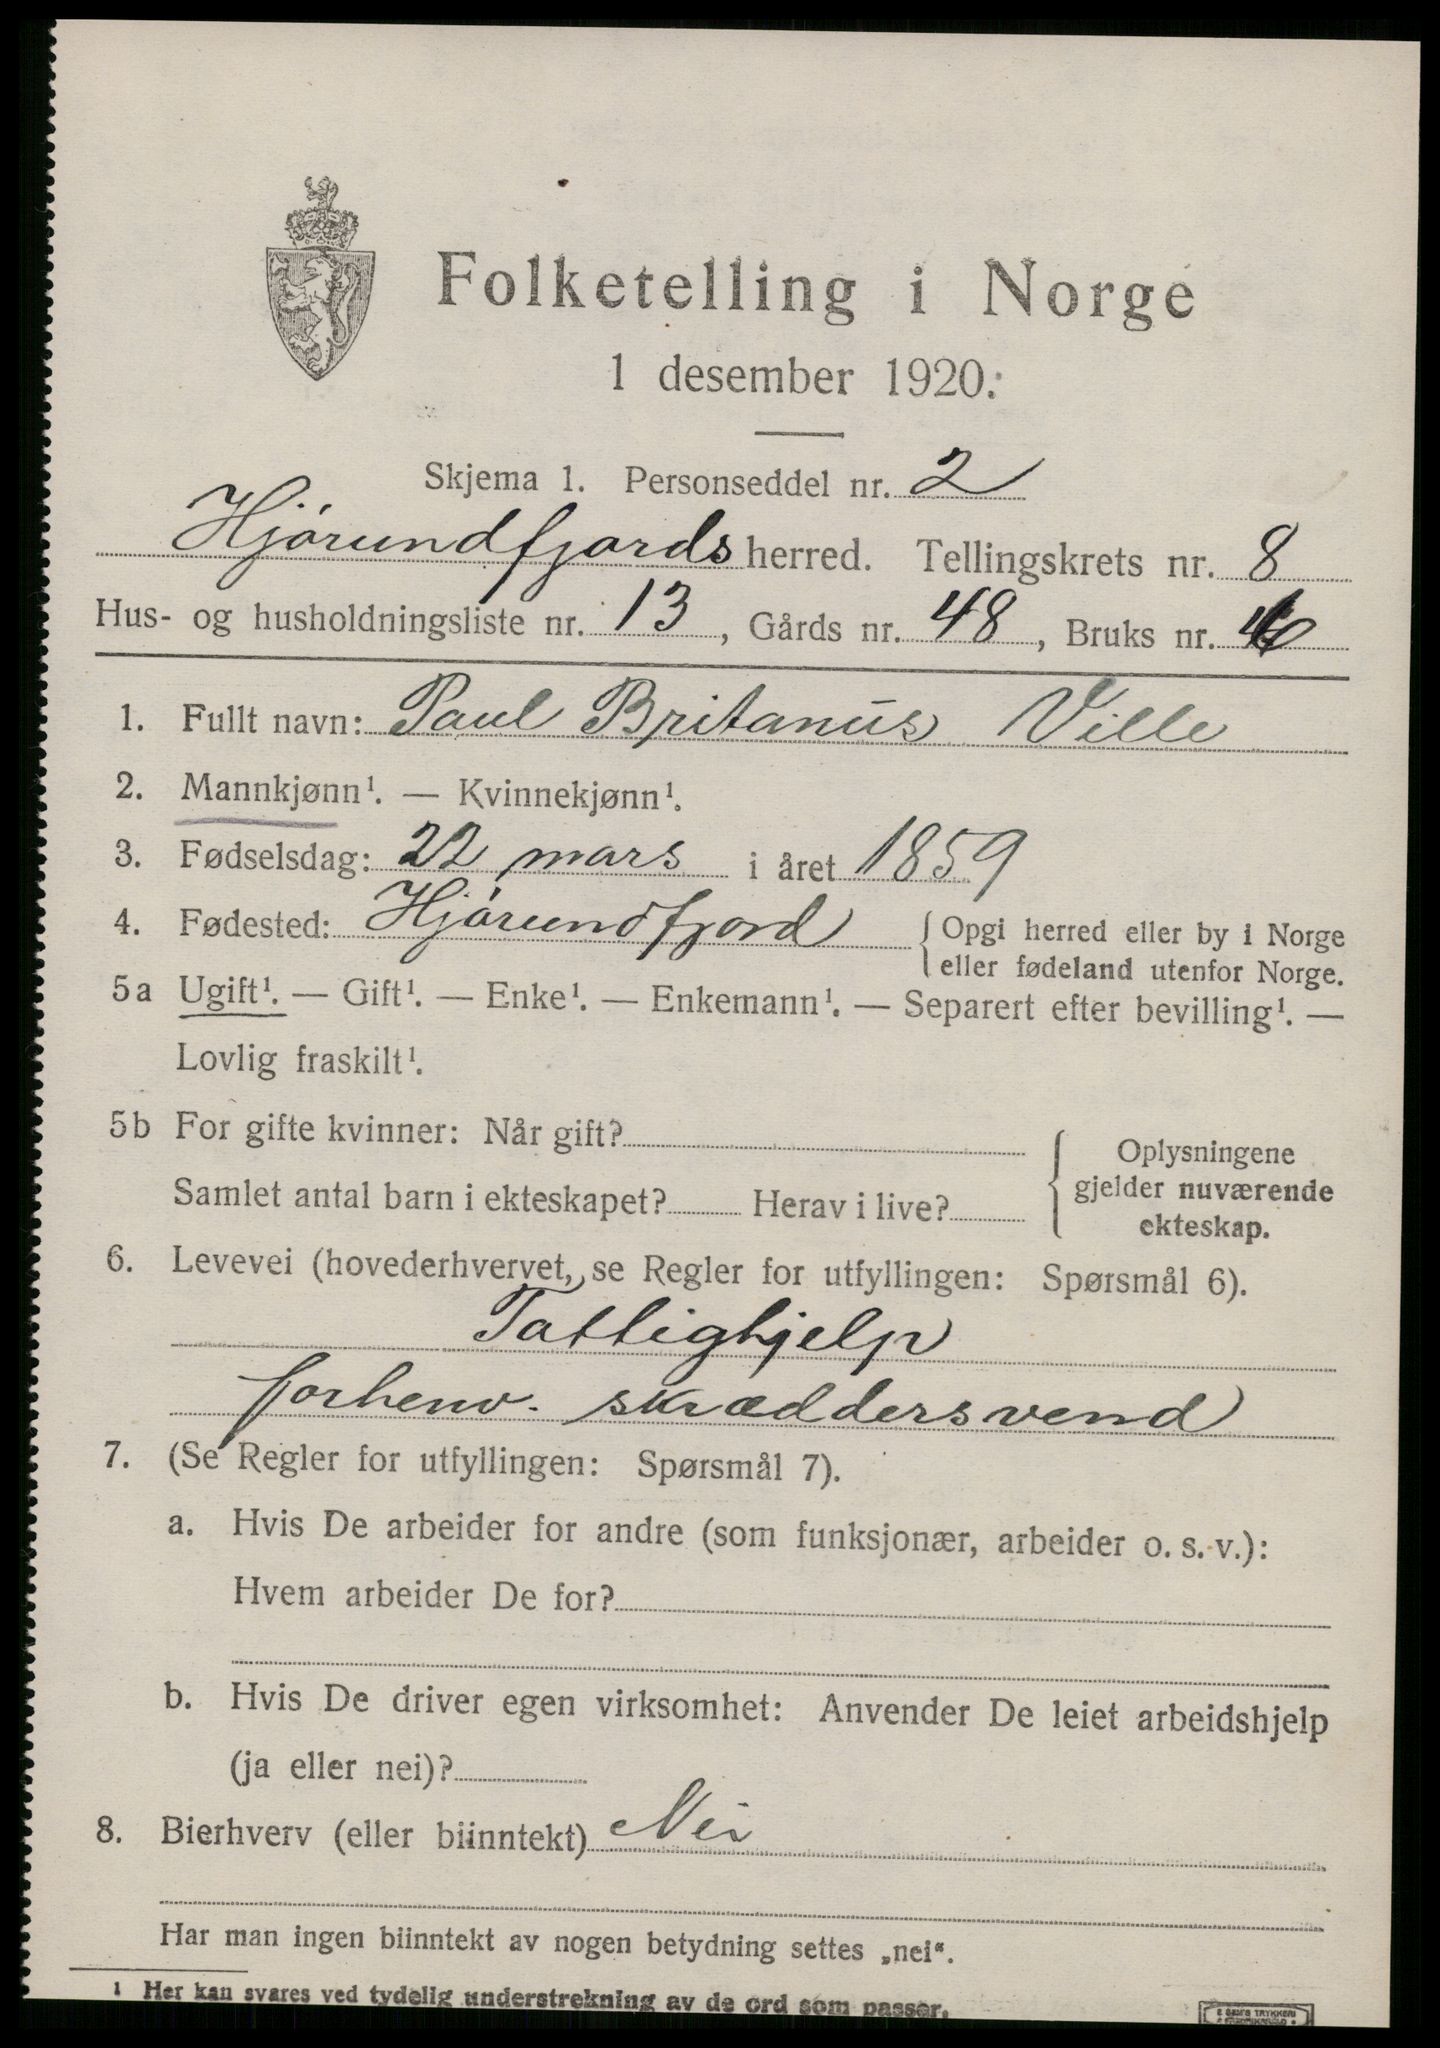 Folketelling i Norge
1 desember 1920.
Skjema 1. Personseddel nr. 2
Hjørundfjords herred. Tellingskrets nr. 8
Hus- og husholdningsliste nr. 13, Gårds nr. 48, Bruks nr.
1. Fullt navn: Paul Britanus Ville
2. Mannkjønn¹. — Kvinnekjønn¹.
3. Fødselsdag: 22 mars i året 1859
4. Fødested: Hjørundfjord { Opgi herred eller by i Norge
eller fødeland utenfor Norge.
5a Ugift¹. — Gift¹. — Enke¹. — Enkemann¹. — Separert efter bevilling¹. —
Lovlig fraskilt¹.
5b For gifte kvinner: Når gift?
Samlet antal barn i ekteskapet? Herav i live?
{ Oplysningene
gjelder nuværende
ekteskap.
6. Levevei (hovederhvervet, se Regler for utfyllingen: Spørsmål 6).
Fattighjelp
forhenv. skræddersvend
7. (Se Regler for utfyllingen: Spørsmål 7).
a. Hvis De arbeider for andre (som funksjonær, arbeider o. s. v.):
Hvem arbeider De for?
b. Hvis De driver egen virksomhet: Anvender De leiet arbeidshjelp
(ja eller nei)?
8. Bierhverv (eller biinntekt) Nei
Har man ingen biinntekt av nogen betydning settes „nei“.
¹ Her kan svares ved tydelig understrekning av de ord som passer.